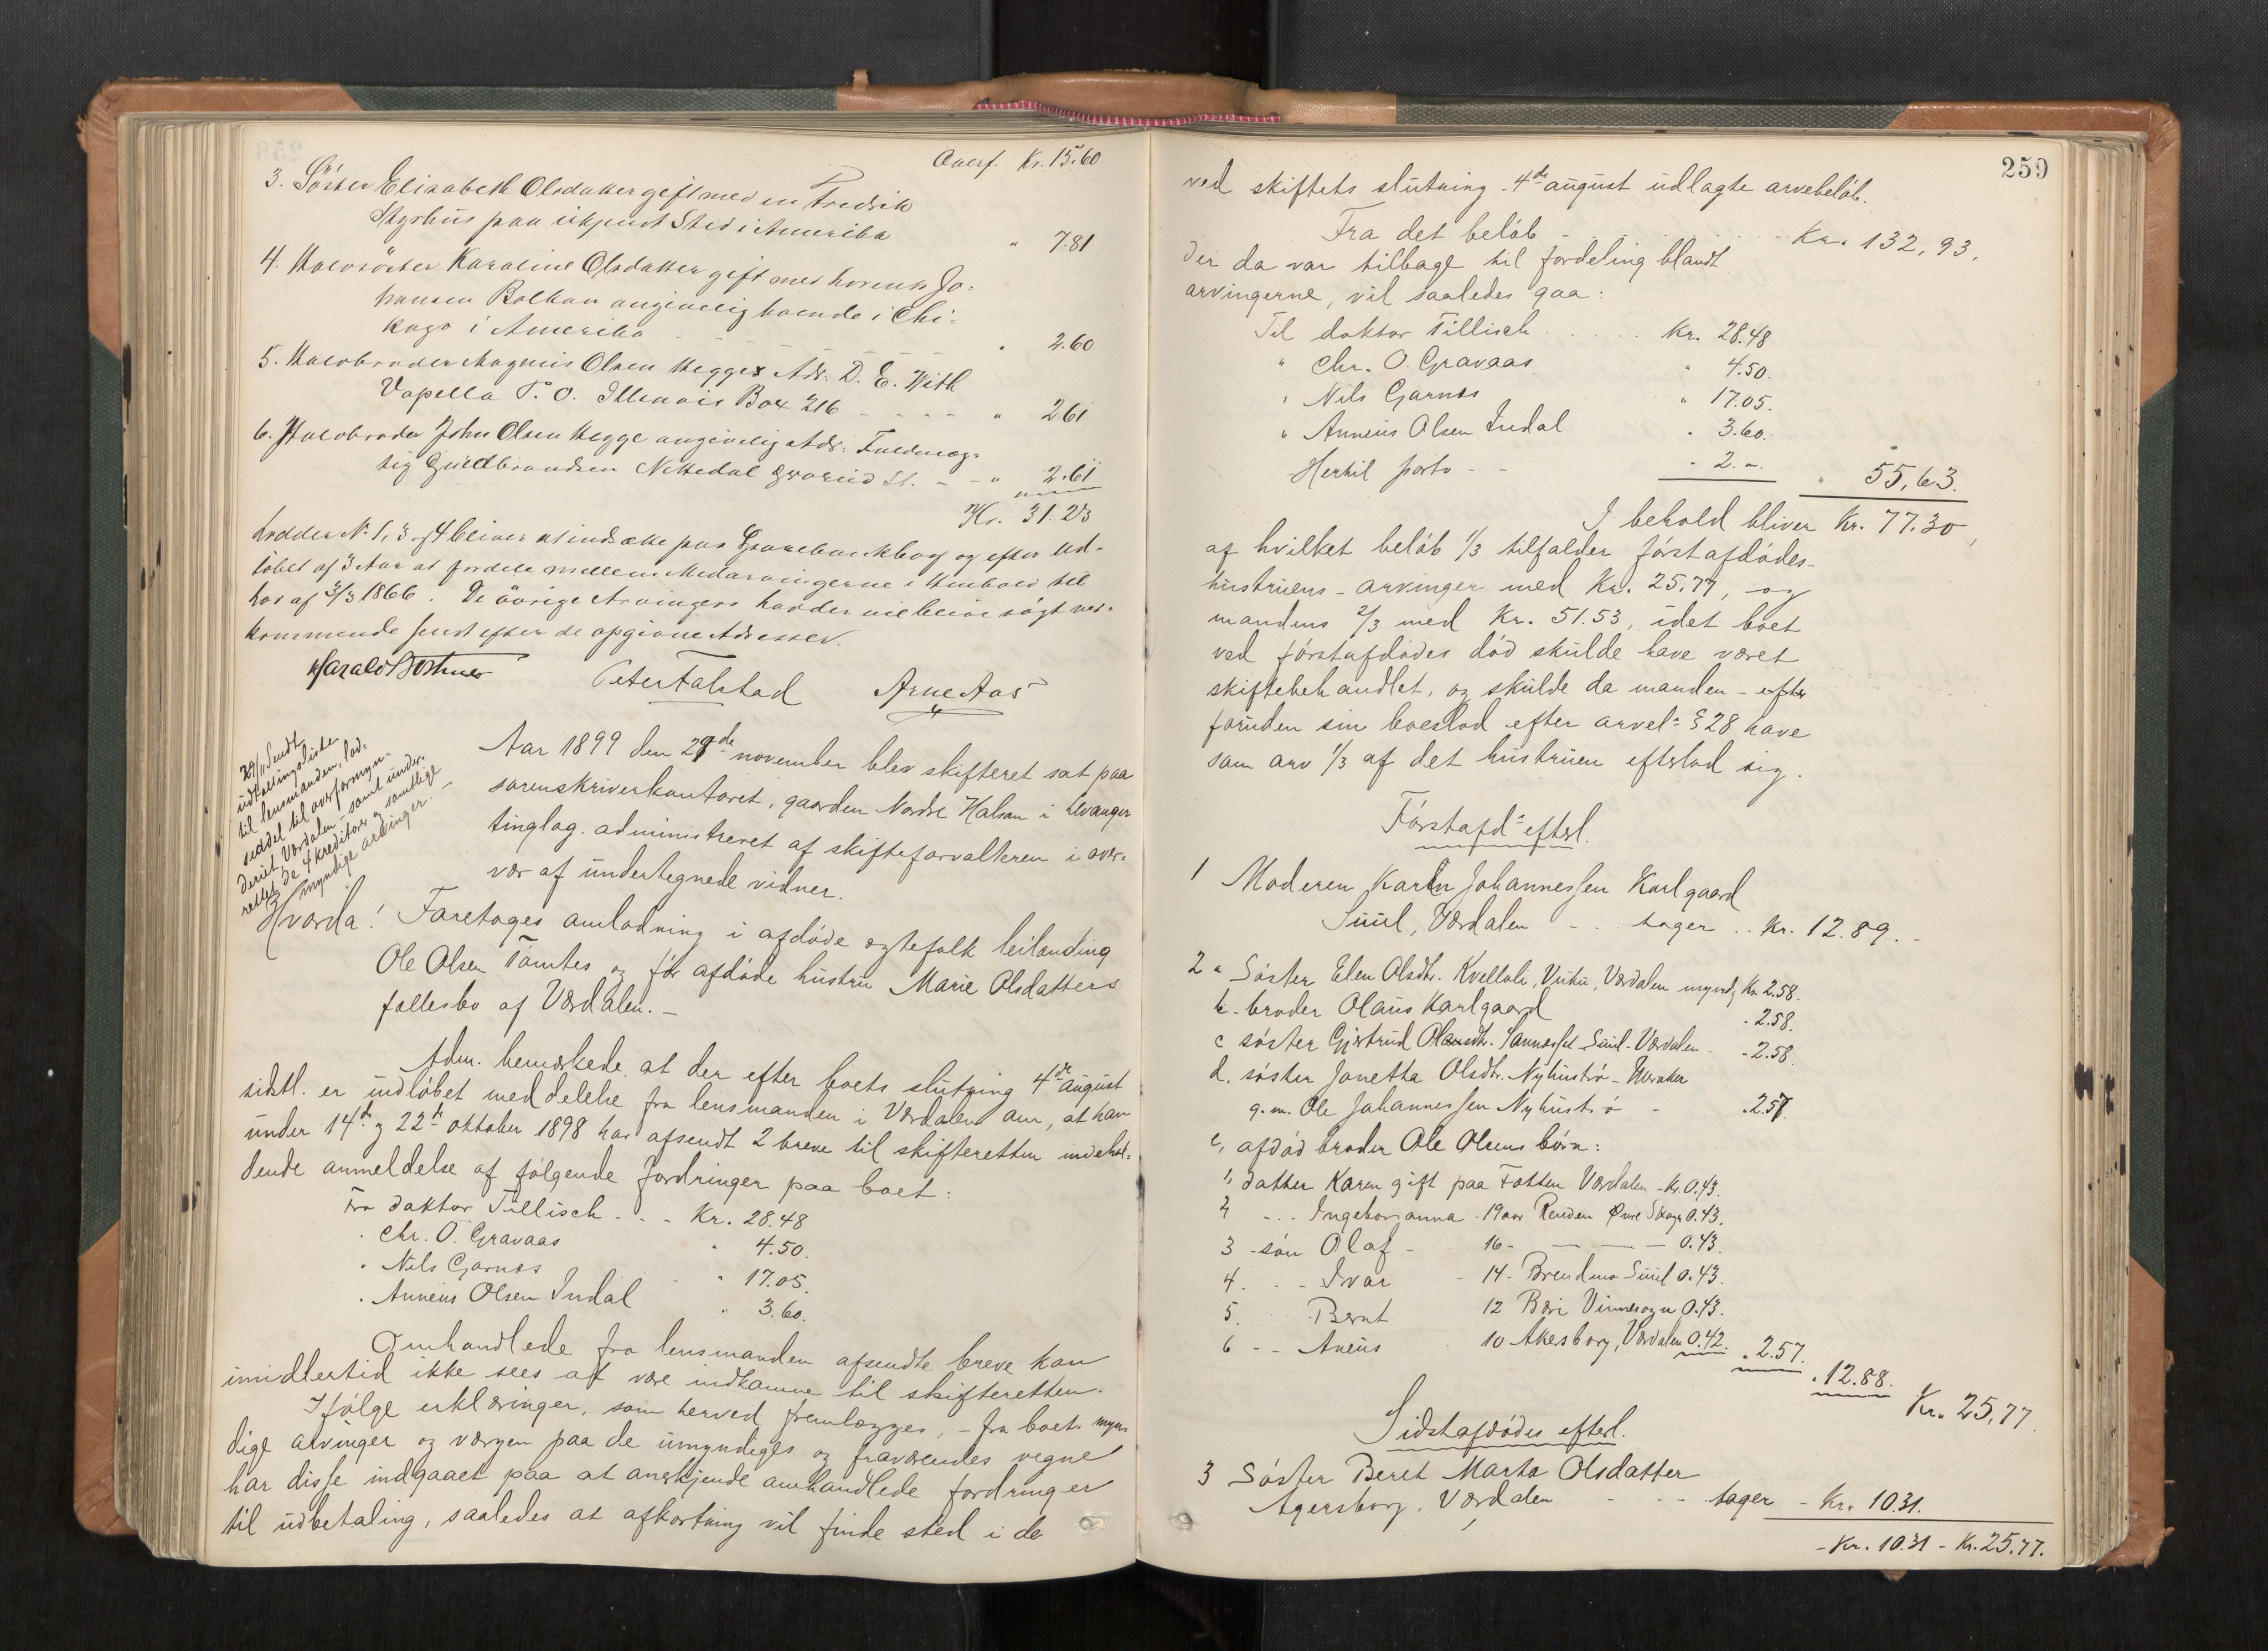 Overf. Kr. 15.60
3. Söster Elisabeth Olsdatter gift med en Fredrik
Styrhus paa ukjendt Sted i Amerika " 7.81
4. Halvsöster Karoline Olsdatter gift med Lorents Jo-
hansen Balhan angivelig boende i Chi-
kago i Amerika " 2.60
5. Halvbroder Magnus Olsen Hegge Adr. D. E. With
Vapella P.O. Illenois Box 216 - - - - " 2.61
6. Halvbroder John Olsen Hegge angivelig Adr: Fuldmæg-
tig Guldbrandsen Nittedal St. - - " 2.61
Kr. 31.23
Lodder No 1, 3 og 4 bliver at indsætte paa Sparebankbog og efter Ud-
löbet af 3 Aar at fordele mellem Medarvingerne i Henhold til
Lov af 3/3 1866. De övrige Arvingers Lodder vil blive sögt ved-
kommende sendt efter de opgivne Adresser.
Harald Bothner Peter Falstad Arne Aas
29/11 Sendt
udkastningsliste
til lensmanden, lod-
seddel til overformyn-
deriet Værdalen - samt under-
rettet de 4 kreditorer og samtlige
myndige arvinger. -
Aar 1899 den 29de november blev skifteret sat paa
sorenskriverkontoret, gaarden Nordre Halsan i Levanger
tinglag. administreret af skifteforvalteren i over-
vær af undertegnede vidner.
Hvorda! Foretoges omlodning i afdöde ægtefolk leilænding
Ole Olsen Tömtes og för afdöde hustru Marie Olsdatters
fællesbo af Værdalen. -
Adm. bemærkede, at der efter boets slutning 4de august
sidstl. er indlöbet meddelelse fra lensmanden i Værdalen om, at han
under 14de og 22de oktober 1898 har afsendt 2 breve til skifteretten indehol-
dende anmeldelse af fölgende fordringer paa boet:
Fra doktor Tillisch - . - Kr. 28.48
" Chr. O. Gravaas " 4.50.
" Nils Garnæs " 17.05.
" Anneus Olsen Indal " 3.60.
Omhandlede fra lensmanden afsendte breve kan
imidlertid ikke sees at være indkomne til skifteretten.
Ifölge erklæringer, som herved fremlægges, - fra boets myn-
dige arvinger og værgen paa de umyndiges og fraværendes vegne
har disse indgaaet paa at anerkjende omhandlede fordringer
til udbetaling, saaledes at afkortning vil finde sted i de
259
ved skiftets slutning 4de august udlagte arvebelöb.
Fra det belöb - . . . . . Kr. 132,93,
der da var tilbage til fordeling blandt
arvingerne, vil saaledes gaa:
Til doktor Tillisch . . . . Kr. 28.48
" Chr. O. Gravaas " 4.50.
" Nils Garnæs " 17.05.
" Anneus Olsen Indal " 3.60.
Hertil porto - - " 2. " " 55,63.
I behold bliver Kr. 77.30,
af hvilket belöb 1/3 tilfalder förstafdödes-
hustruens - arvinger med Kr. 25.77, og
mandens 2/3 med Kr. 51.53, idet boet
ved förstafdödes död skulde have været
skiftebehandlet, og skulde da manden - efter
foruden sin boeslod efter arvel: § 28 have
som arv 1/3 af det hustruen efterlod sig.
Förstafd: efterl.
1 Moderen Karen Johannessen Karlgaard
Suul, Værdalen - . . tager . . Kr. 12.89. -
2 a Söster Elen Olsdtr. Kvelloli, Vuku, Værdalen myndg Kr. 2.58.
b. broder Olaus Karlgaard " 2.58.
c söster Gjertrud Olausdtr. Sannæsset Suul - Værdalen - " 2.58.
d. söster Janetta Olsdtr. Nyhuströ - Meraker
g. m. Ole Johannessen Nyhuströ - " 2.57.
e, afdöd broder Ole Olsens börn:
1, datter Karen gift paa Fætten Værdalen - Kr. 0.43.
2 - . . Ingeborganna - 19 aar Renden Övre Skogn 0.43.
3 - sön Olaf - 16 - — — 0.43.
4 . . - Ivar - 14 - Brendmo Suul 0.43.
5. . . Bernt 12 Bæri Vinnesogn 0.43.
6 - - Aneus 10 Akesborg, Værdalen 0.42. " 2.57.
" 12.88.
Kr. 25,77.
Sidstafdödes efterl.
3 Söster Beret Marta Olsdatter
Agersborg, Værdalen - - - tager - Kr. 10.31.
- Kr. 10.31 - Kr. 25.77.